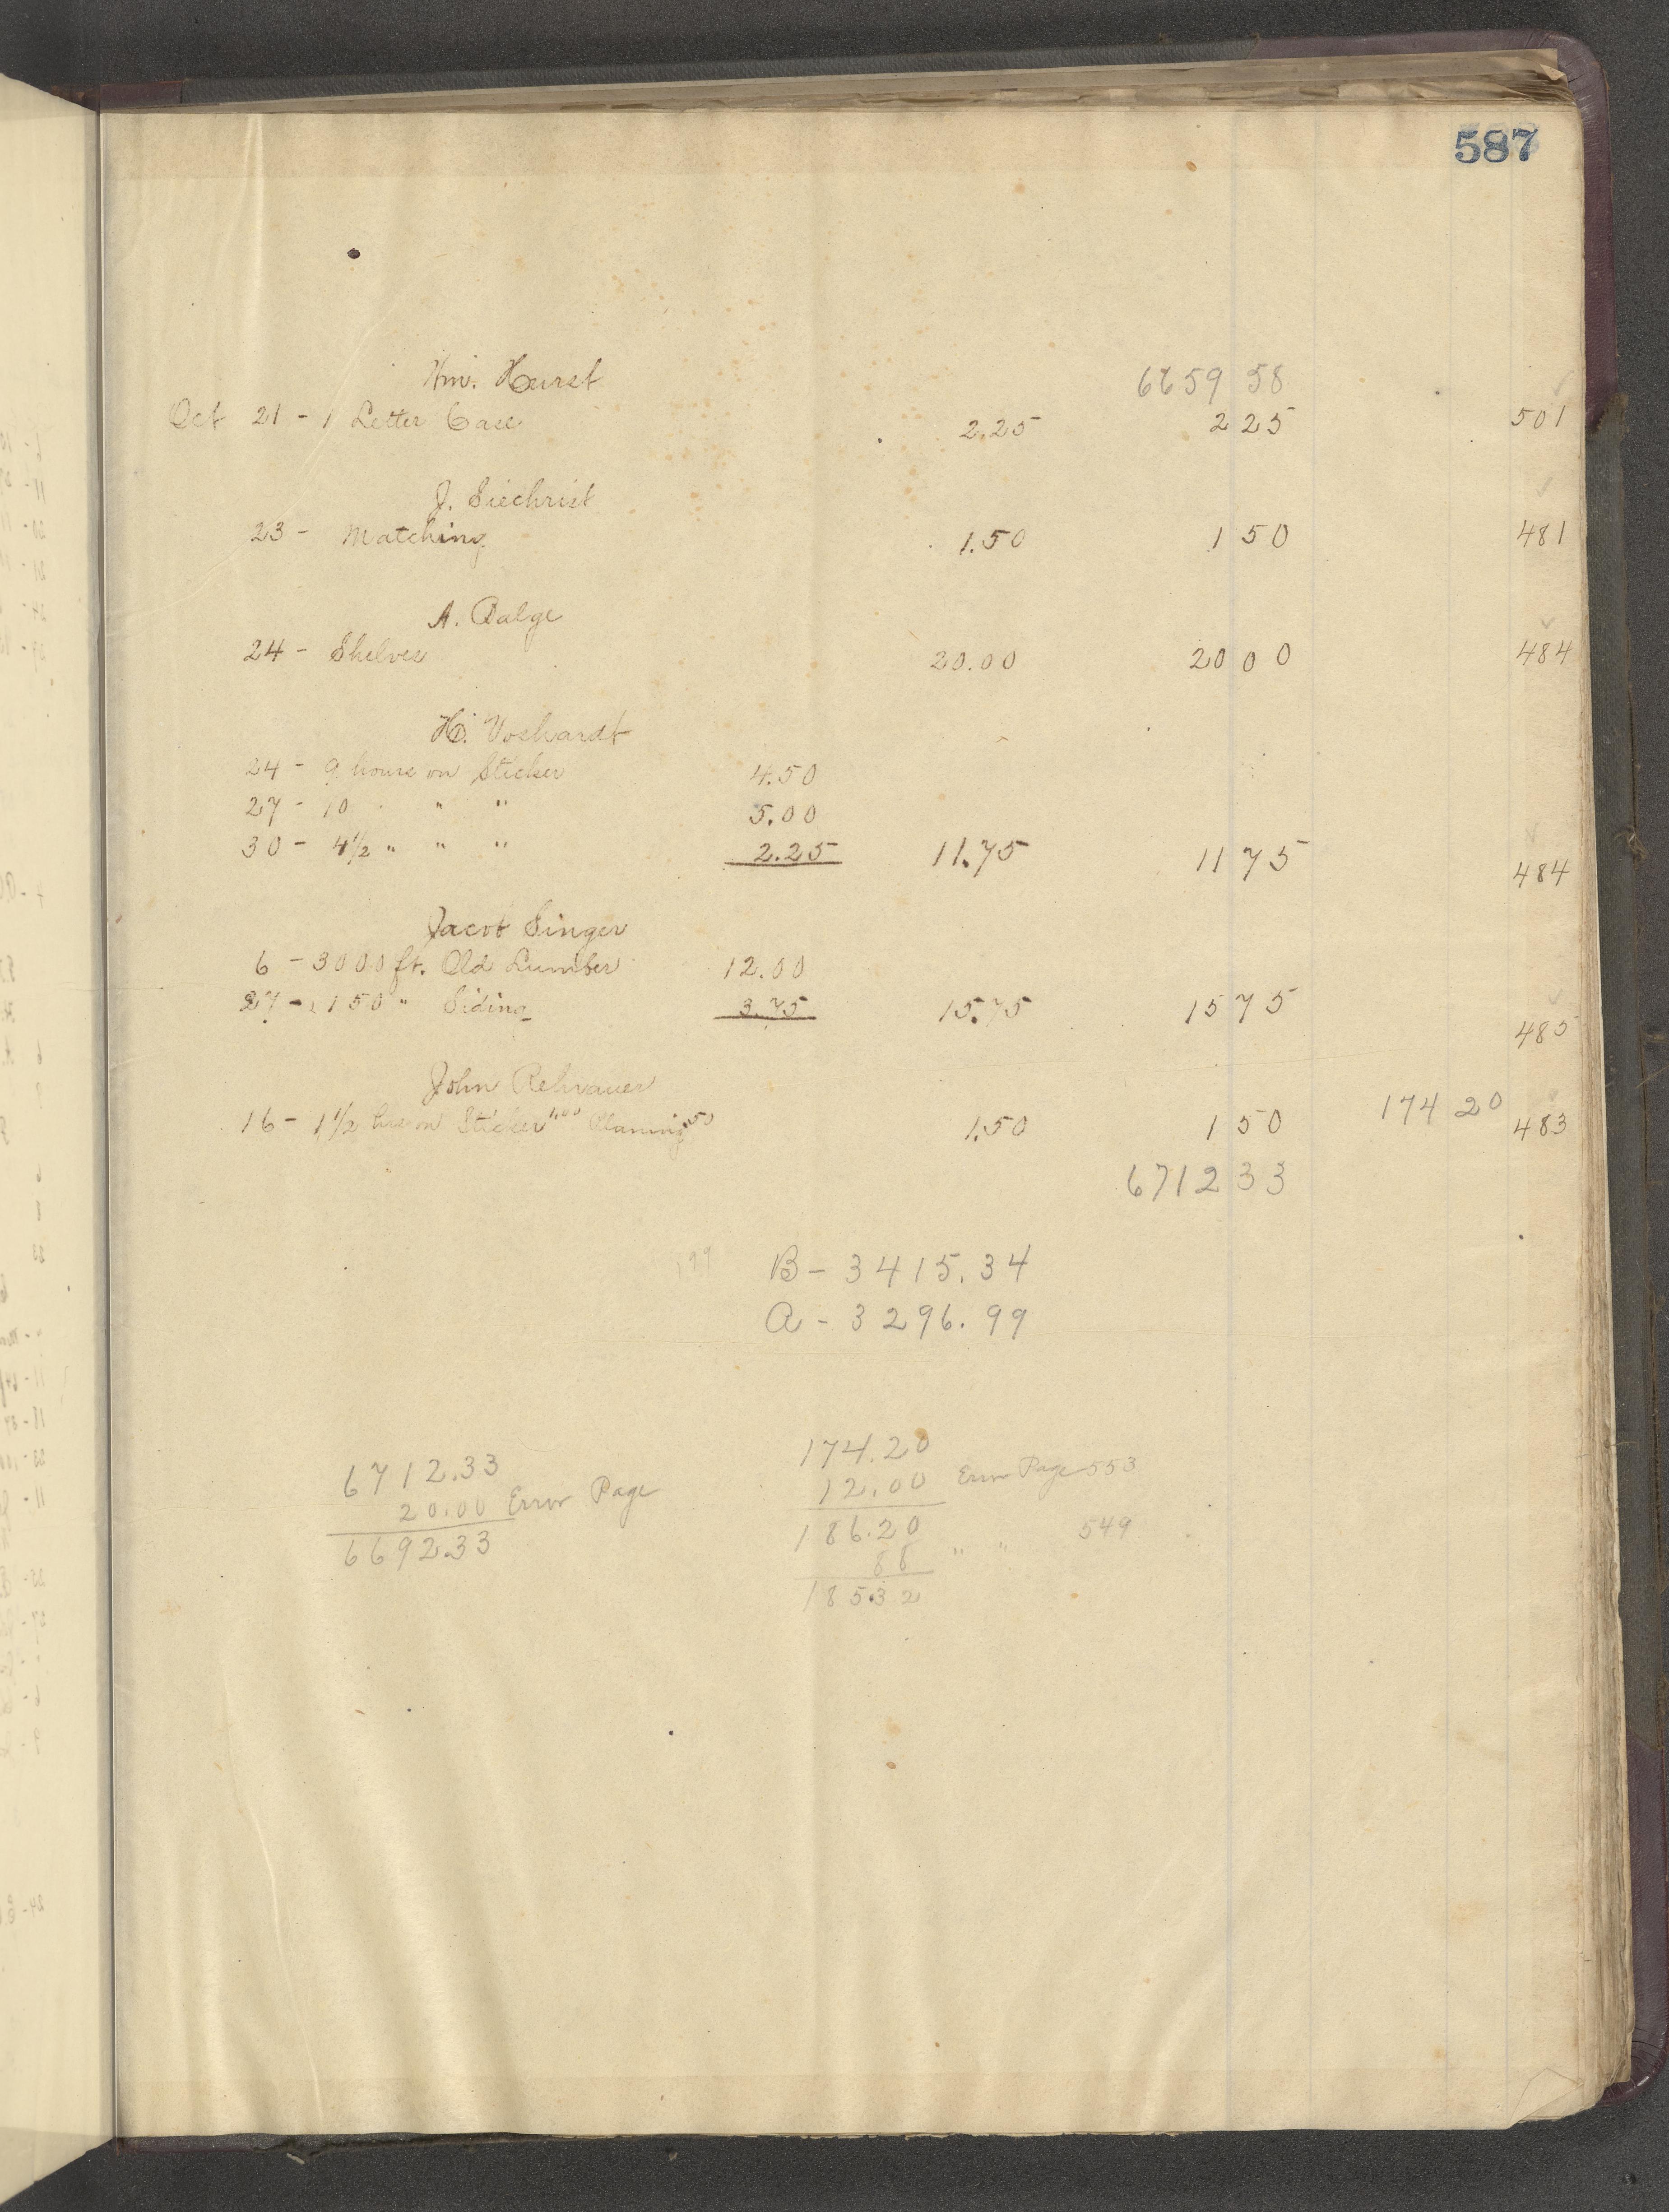 587
Wm. Hurst 6659 58
Oct 21 - 1 Letter Case 2.25 2 25 501
J. Siechrist
23 - Matching 1.50 1 50 481
A. Dalge
24 - Shelves 20.00 20 00 484
H. Voshardt
24 - 9 hours on Sticker 4.50
27 - 10 " " " 5.00
30 - 4½ " " " 2.25 11.75 11 75 484
Jacob Singer
6 - 3000 ft. Old Lumber 12.00
27 - 150 " Siding 3.75 15.75 15 75 485
John Rehrauer
16 - 1½ hrs on Sticker 1.00 Planning .50 1.50 1 50 174 20 483
6712 33
B - 3415.34
A - 3296.99
6712.33
20.00 Error Page
6692.33
174.20
12.00 Error Page 553
186.20
88 " " 549
185.32